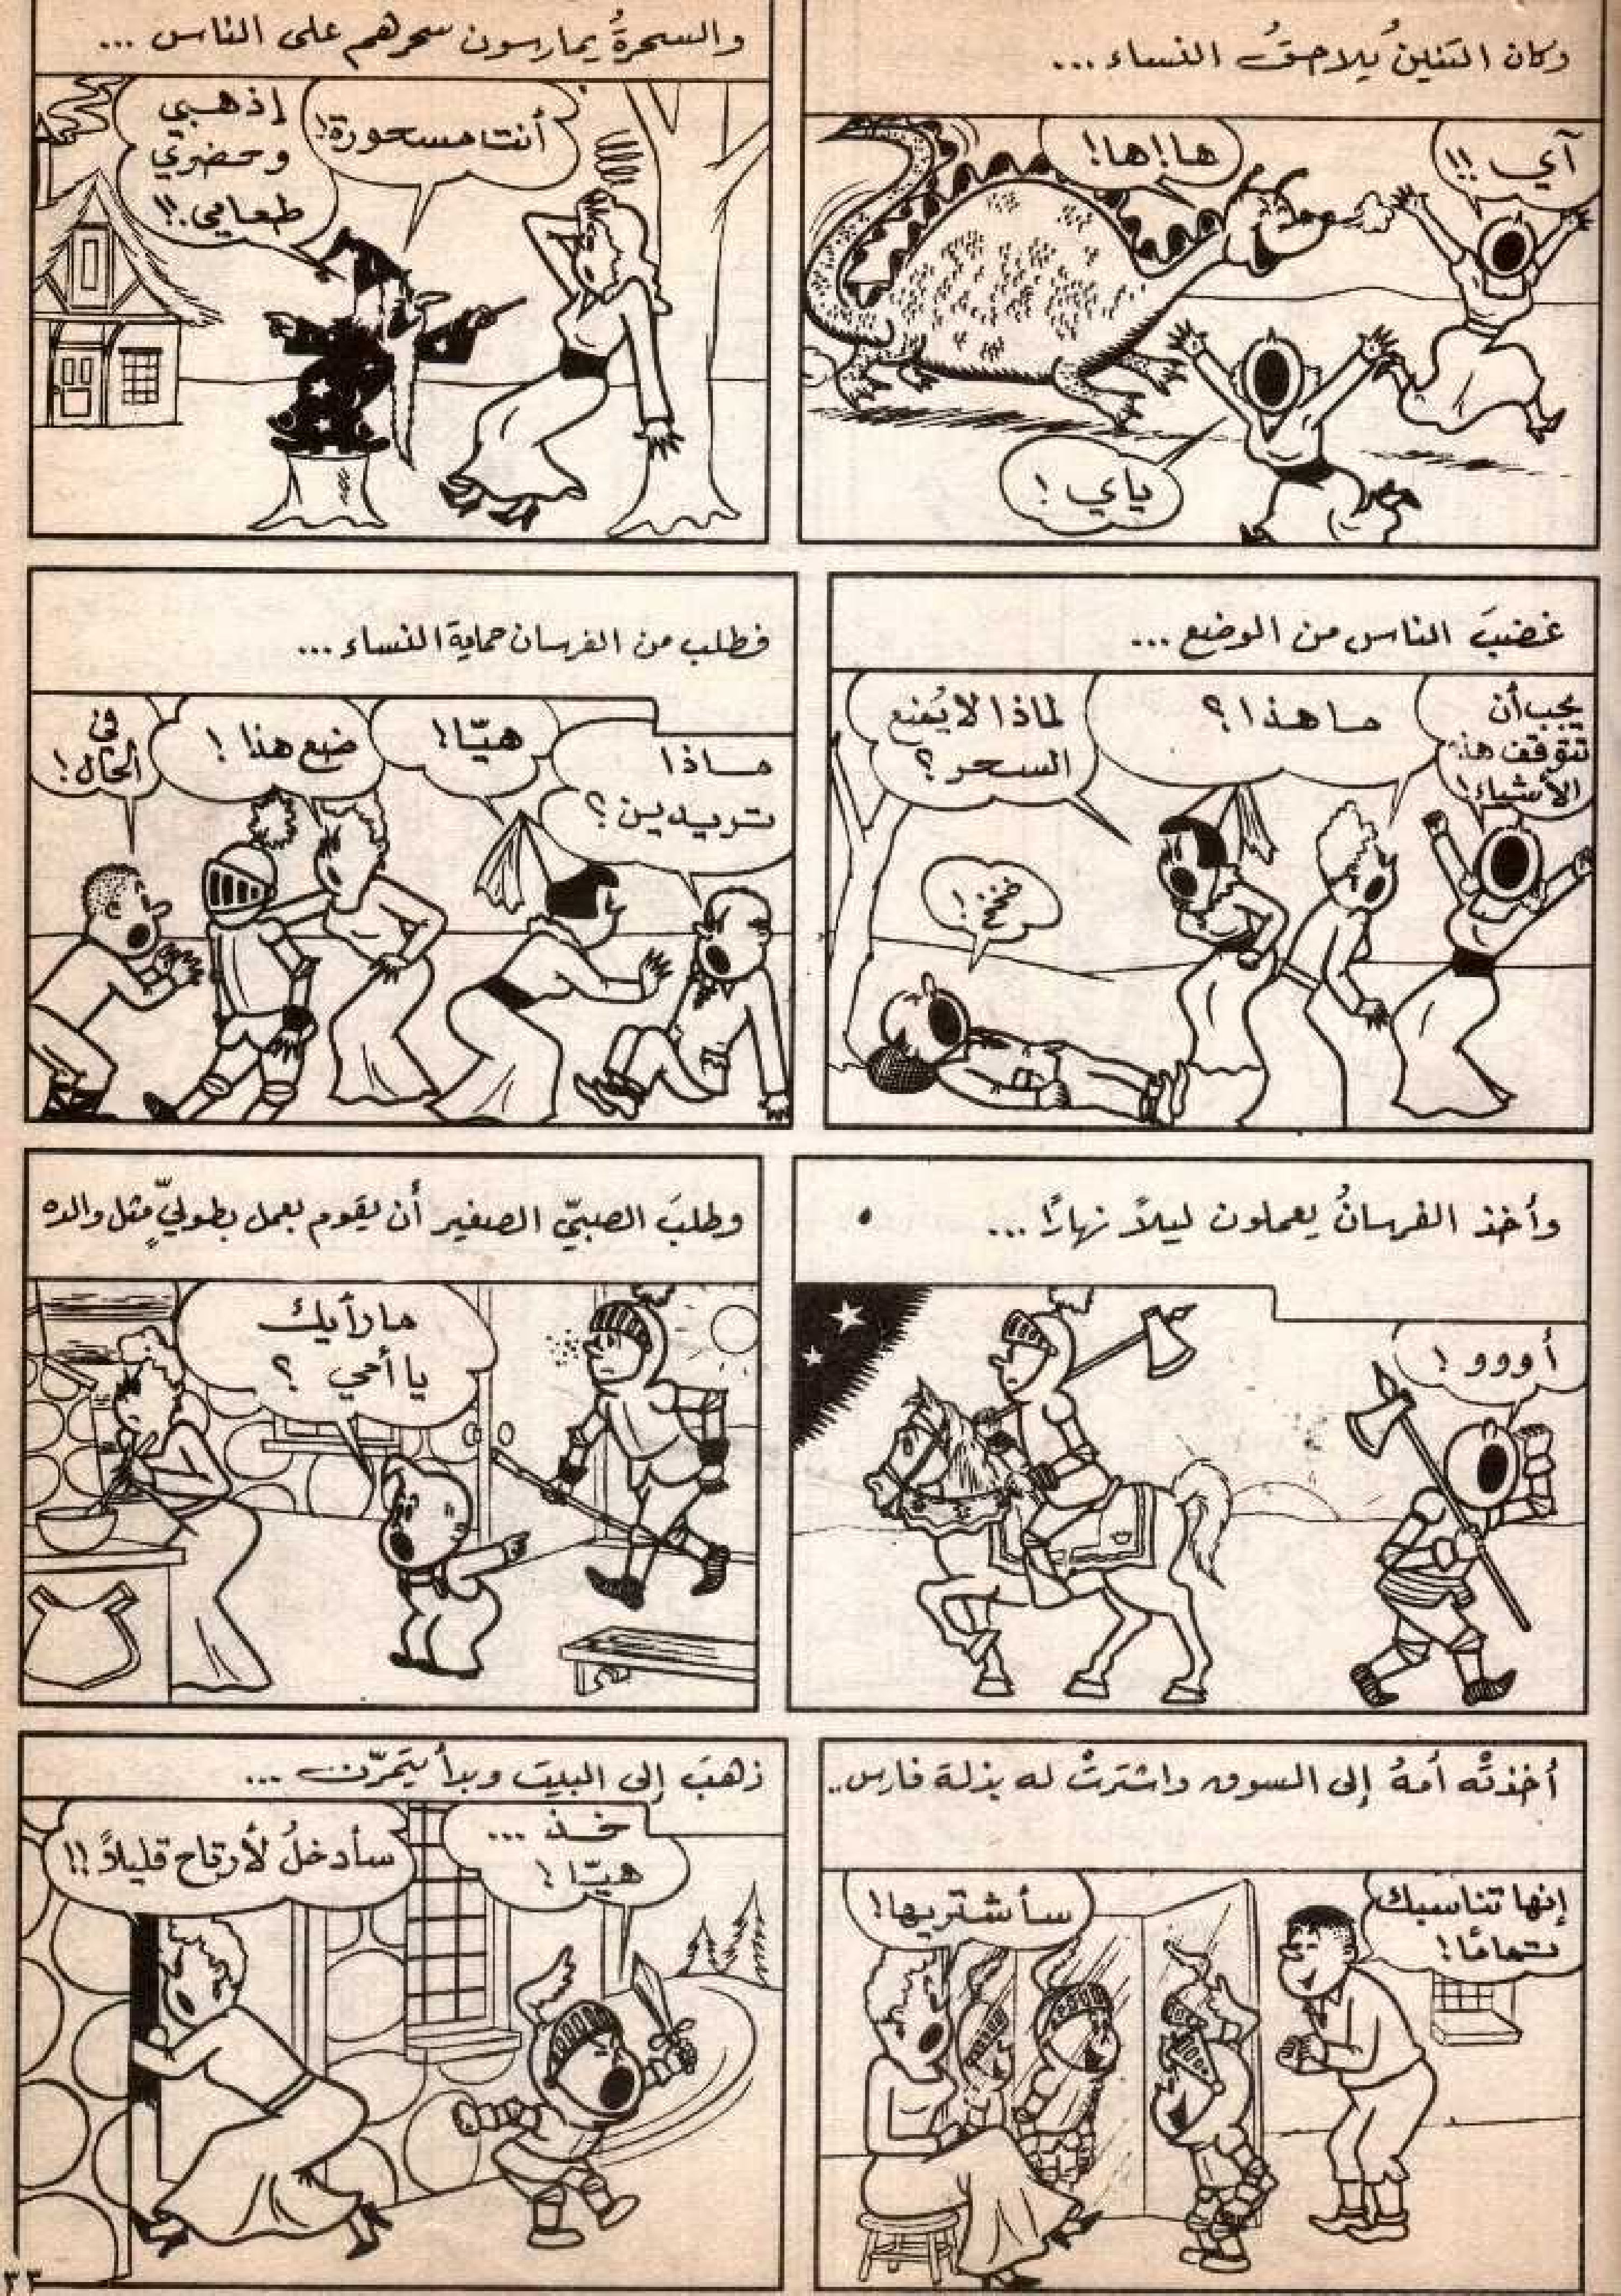 وكان التنين يُلاحقُ النساء ...
آي !!
ها! ها!
ياي !
والسحرةُ يمارسون سحرهم على الناس ...
أنت مسحورة!
إذهبي
وحضري
طعامي !!
غضبَ الناس من الوضع ...
يجب أن
تتوقف هذه
الأشياء!
ما هذا ؟
لماذا لا يُمنع
السحر ؟
فطلب من الفرسان حماية النساء ...
ماذا
تريدين ؟
هيّا !
ضع هذا !
في
الحال !
وأخذ الفرسانُ يعملون ليلاً نهارًا ...
أووو !
وطلبَ الصبيّ الصغير أن يقوم بعمل بطوليّ مثل والده
ما رأيك
يا أمي ؟
أخذتْه أمهُ إلى السوق واشترتْ له بذلة فارس ..
إنها تناسبك
تمامًا !
سأشتريها !
ذهبَ إلى البيت وبدأ يتمرّن ...
خذ ...
هيّا !
سأدخلُ لأرتاح قليلاً !!
٣٣